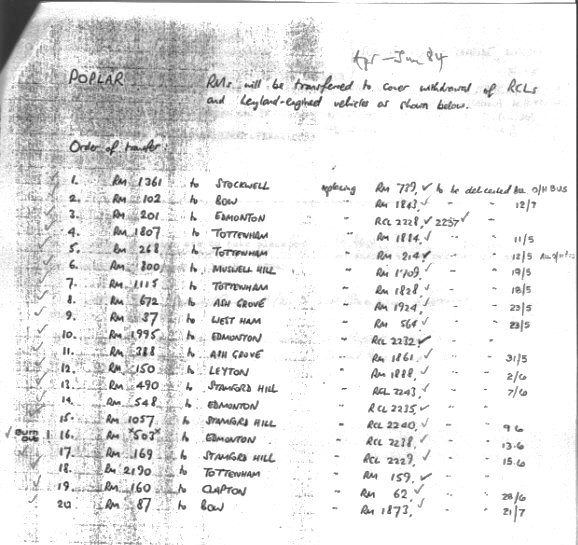 Apr - Jun 84
POPLAR RMs will be transferred to cover withdrawal of RCLs
and Leyland-engined vehicles as shown below.
Order of transfer:
1. RM 1361 to STOCKWELL replacing RM 739, ✓ to be delicensed O/H BUS
2. RM 102 to BOW " RM 1843, ✓ " " 12/7
3. RM 201 to EDMONTON " RCL 2228, ✓ 2237 ✓ "
4. RM 1807 to TOTTENHAM " RM 1884, ✓ " " 11/5
5. RM 268 to TOTTENHAM " RM 214 ✓ " " 12/5
6. RM 800 to MUSWELL HILL " RM 1709, ✓ " " 19/5
7. RM 1115 to TOTTENHAM " RM 1828 ✓ " " 18/5
8. RM 672 to ASH GROVE " RM 1924, ✓ " " 23/5
9. RM 37 to WEST HAM " RM 564, ✓ " " 23/5
10. RM 1995 to EDMONTON " RCL 2232, ✓ " "
11. RM 388 to ASH GROVE " RM 1861, ✓ " " 31/5
12. RM 150 to LEYTON " RM 1888, ✓ " " 2/6
13. RM 490 to STAMFORD HILL " RCL 2243, ✓ " " 7/6
14. RM 548 to EDMONTON " RCL 2235, ✓ " "
15. RM 1057 to STAMFORD HILL " RCL 2240, ✓ " " 9.6
✓ BURNT OUT 16. RM *503* to EDMONTON " RCL 2238, ✓ " " 13.6
17. RM 169 to STAMFORD HILL " RCL 2229, ✓ " " 15.6
18. RM 2190 to TOTTENHAM " RM 159, ✓ " "
19. RM 160 to CLAPTON " RM 62, ✓ " " 28/6
20. RM 87 to BOW " RM 1873, ✓ " " 21/7